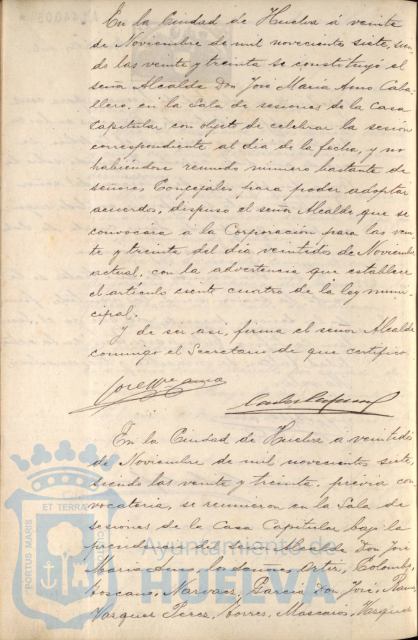 En la Ciudad de Huelva á veinte
de Noviembre de mil novecientos siete, sien
do las veinte y treinta se constituyó el
señor Alcalde Don José Maria Amo Caba
llero, en la Sala de sesiones de la Casa
Capitular con objeto de celebrar la sesion
correspondiente al dia de la fecha, y no
habiéndose reunido número bastante de
señores Concejales para poder adoptar
acuerdos, dispuso el señor Alcalde que se
convocara á la Corporación para las vein
te y treinta del dia veintidos de Noviembre
actual, con la advertencia que establece
el artículo ciento cuatro de la ley muni
cipal.
Y de ser asi, firma el señor Alcalde
conmigo el Secretario de que certifico.
José Mª Amo
En la Ciudad de Huelva a veintidos
de Noviembre de mil novecientos siete
siendo las veinte y treinta, previa con
vocatoria, se reunieron en la Sala de
sesiones de la Casa Capitular bajo la
presidencia del señor Alcalde Don José
Maria Amo, los señores Ortiz, Colombo,
Toscano, Narvaez, Garcia Don José,
Vazquez Perez, Torres, Mascarós, Vazquez
PORTUS MARIS
ET TERRAE
Ayuntamiento de
HUELVA